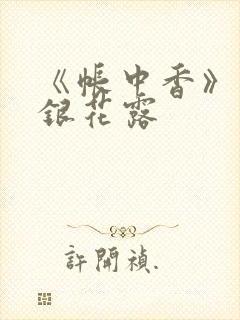 《帳中香》
銀花露
許開禎.